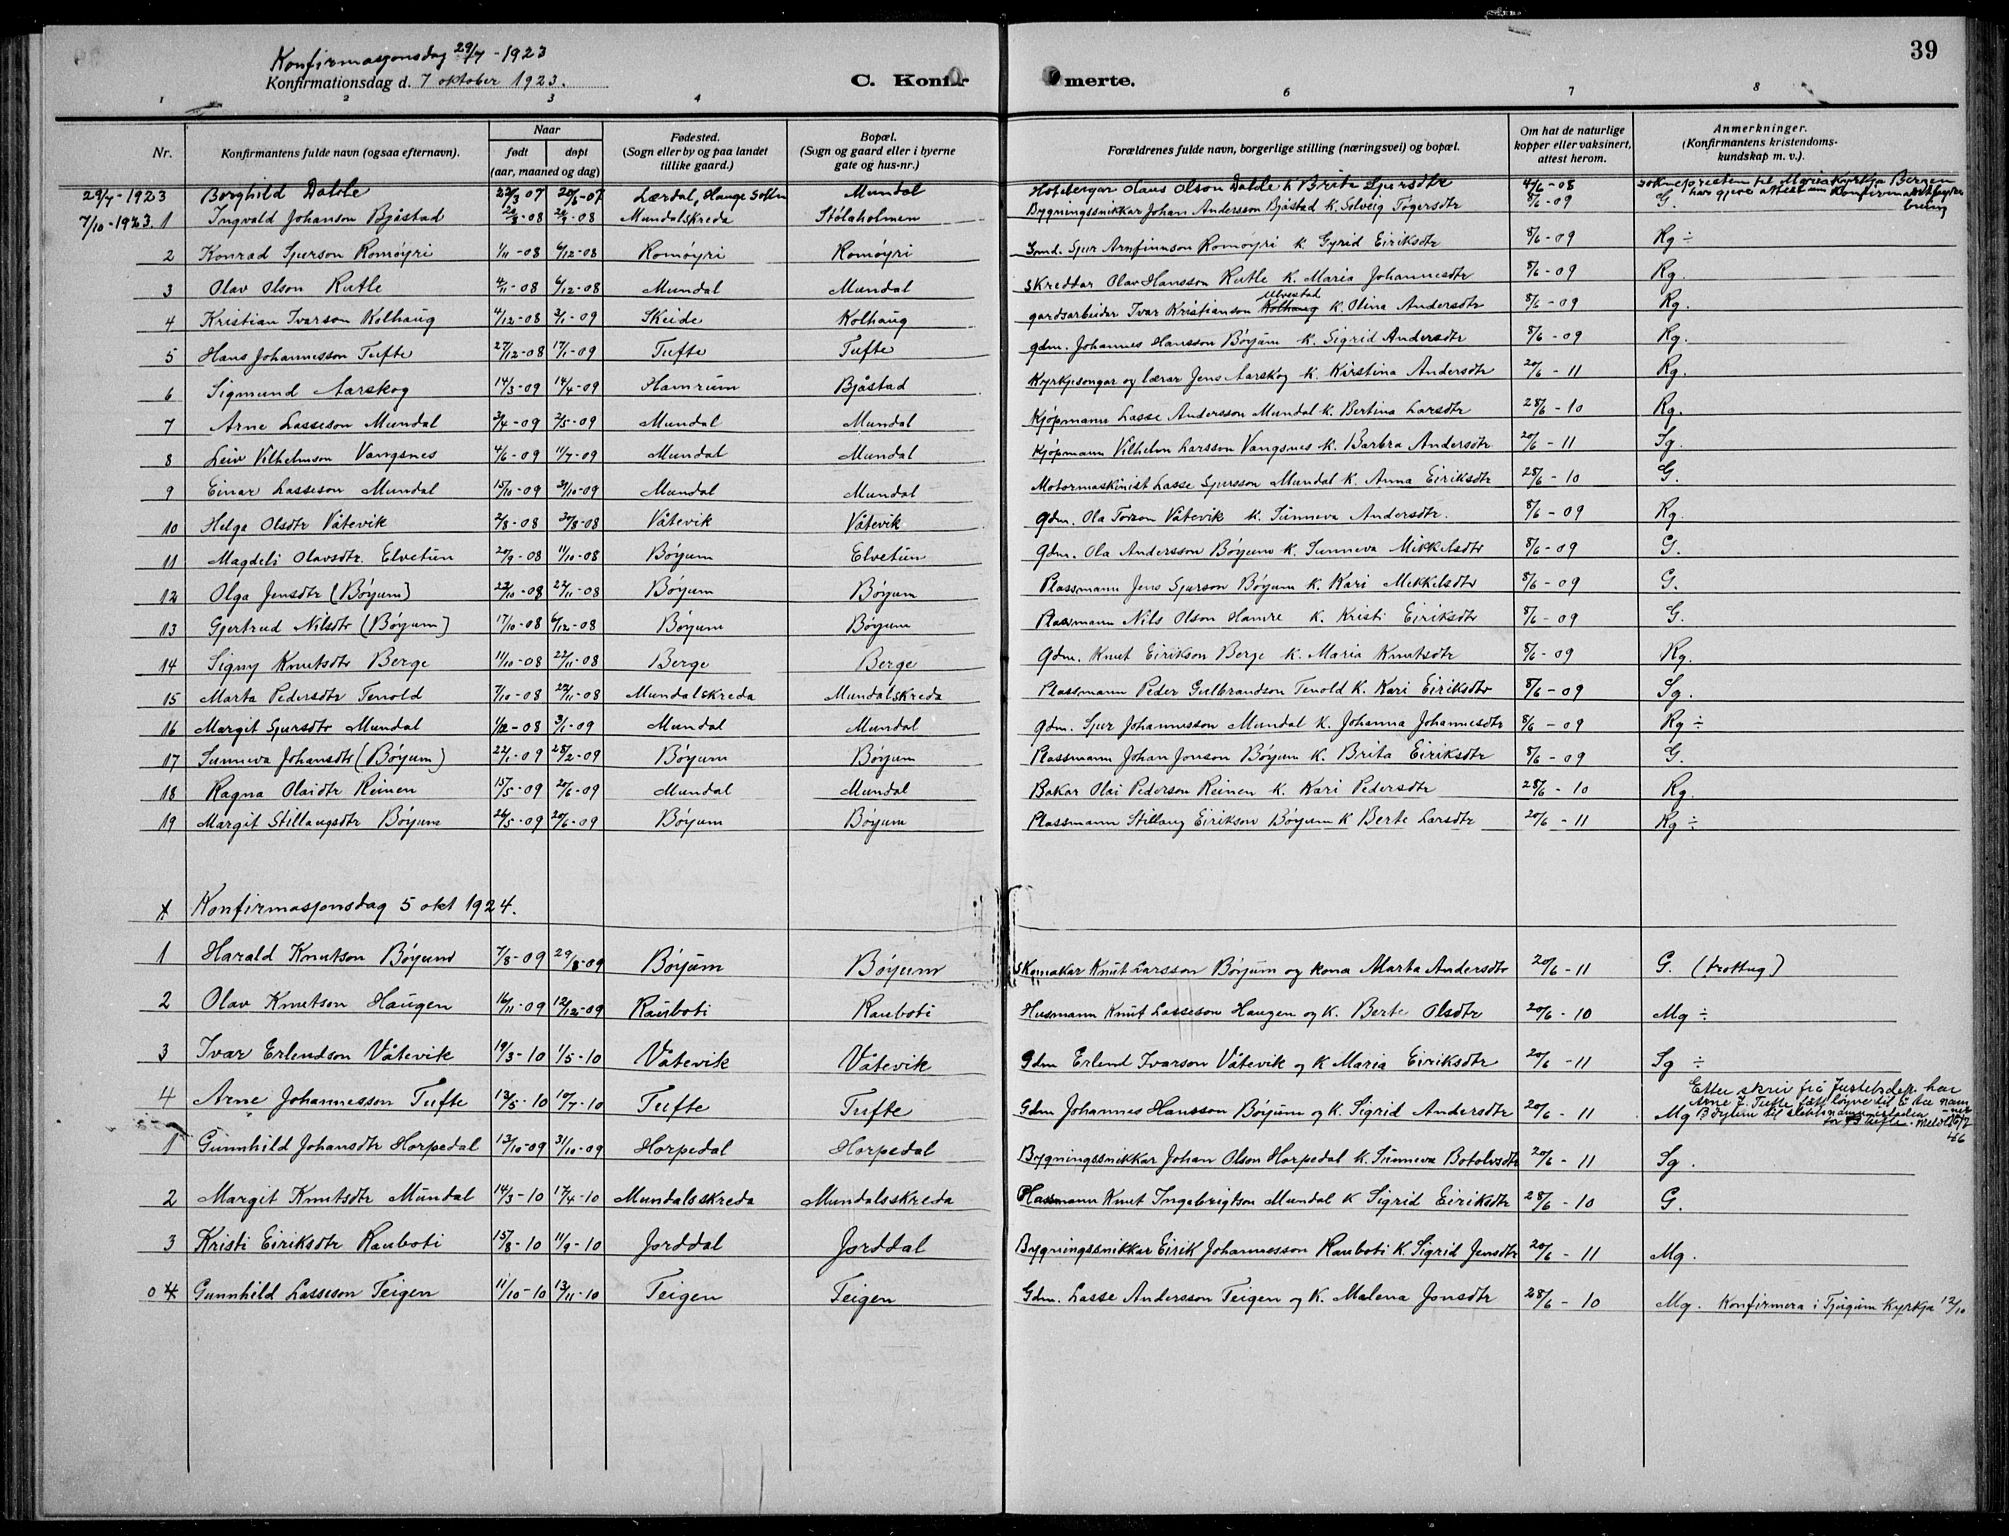 39
Konfirmasjonsdag 29/7 - 1923
Konfirmationsdag d. 7 oktober 1923.
C. Konfir merte.
1 2 3 4 6 7 8
Nr. Konfirmantens fulde navn (ogsaa efternavn). Naar født døpt (aar, maaned og dag) Fødested. (Sogn eller by og paa landet tillike gaard.) Bopæl. (Sogn og gaard eller i byerne gate og hus-nr.) Forældrenes fulde navn, borgerlige stilling (næringsvei) og bopæl. Om hat de naturlige kopper eller vaksinert, attest herom. Anmerkninger. (Konfirmantens kristendomskundskap m. v.).
29/7 - 1923 Borghild Dahle 22/3 07 20/6-07 Lærdal, Hauge Sokn Mundal Hans Olson Dahle k Brita Sjursdtr 4/6 - 08 soknepresten til Mariakyrkja Bergen har gjeve attest um
7/10 - 1923. 1 Ingvald Johanson Bjåstad Mundalskreda Stølaholmen Bygningssnikkar Johan Andersson Bjåstad k. Solveig Tøgersdtr 8/6 - 09 G.
2 Konrad Sjurson Romøyri 1/11 - 08 6/12-08 Romøyri Romøyri Smd. Sjur Arnfinnson Romøyri k. Gyrid Eiriksdtr 8/6 - 09 Rg ÷
3 Olav Olson Rutle 4/11 - 08 6/12-08 Mundal Mundal Skreddar Olav Hansson Rutle k. Maria Johannesdtr 8/6 - 09 Rg.
4 Kristian Ivarson Kolhaug 4/12 - 08 3/1-09 Skeide Kolhaug gardsarbeidar Ivar Kristianson Kolhaug Ulvestad k. Olina Andersdtr 8/6 - 09 Rg.
5 Hans Johannesson Tufte 27/12-08 17/1-09 Tufte Tufte gdm. Johannes Hansson Bøyum k. Sigrid Andersdtr 8/6 - 09 Rg.
6 Sigmund Aarskog 14/3-09 14/4-09 Hamrum Bjåstad Kyrkjesongar og lærar Jens Aarskog k. Kirstina Andersdtr 20/6 - 11 Rg.
7 Arne Lasseson Mundal 3/4-09 2/5-09 Mundal Mundal Kjøpmann Lasse Andersson Mundal k. Bertina Larsdtr 28/6 - 10 Rg.
8 Leiv Vilhelmson Vangsnes 4/6-09 11/7-09 Mundal Mundal Kjøpmann Vilhelm Larsson Vangsnes k. Barbra Andersdtr 20/6 - 11 Sg.
9 Einar Lasseson Mundal 15/10-09 31/10-09 Mundal Mundal Motormaskinist Lasse Sjursson Mundal k. Anna Eiriksdtr 28/6 - 10 G.
10 Helga Olsdtr Våtevik 2/8-08 30/8-08 Våtevik Våtevik gdm. Ola Torson Våtevik k. Sunneva Andersdtr. 8/6 - 09 Rg.
11 Magdeli Olavsdtr. Elvetun 20/9-08 11/10-08 Bøyum Elvetun Gdm. Ola Andersson Bøyum k. Sunneva Mikkelsdtr 8/6 - 09 G.
12 Olga Jensdtr (Bøyum) 22/10-08 22/11-08 Bøyum Bøyum Plassmann Jens Sjurson Bøyum k. Kari Mikkelsdtr 8/6 - 09 G.
13 Gjertrud Nilsdtr (Bøyum) 17/10-08 6/12-08 Bøyum Bøyum Plassmann Nils Olson Hamre k. Kristi Eiriksdtr 8/6 - 09 G.
14 Signy Knutsdtr Berge 11/10-08 22/11-08 Berge Berge Gdm. Knut Eirikson Berge k. Maria Knutsdtr 8/6 - 09 Rg.
15 Marta Pedersdtr Tenold 7/10-08 22/11-08 Mundalskreda Mundalskreda Plassmann Peder Gulbrandson Tenold k. Kari Eiriksdtr 8/6 - 09 Sg.
16 Margit Sjursdtr Mundal 1/12-08 3/1-09 Mundal Mundal gdm. Sjur Johannesson Mundal k. Johanna Johannesdtr 8/6 - 09 Rg ÷
17 Sunneva Johansdtr (Bøyum) 22/1-09 28/2-09 Bøyum Bøyum Plassmann Johan Jonson Bøyum k. Brita Eiriksdtr 8/6 - 09 G.
18 Ragna Olaidtr Reinen 15/5-09 27/6-09 Mundal Mundal Bakar Olai Pederson Reinen k. Kari Pedersdtr 28/6 - 10 Rg.
19 Margit Stillaugsdtr Bøyum 26/5-09 20/6-09 Bøyum Bøyum Plassmann Stillaug Eirikson Bøyum k Berte Larsdtr 20/6 - 11 Rg ÷
Konfirmasjonsdag 5 okt 1924.
1 Harald Knutson Bøyum 7/8-09 29/8-09 Bøyum Bøyum Skomakar Knut Larsson Bøyum og kona Marta Andersdtr 20/6-11 G.
2 Olav Knutson Haugen 16/11-09 12/12-09 Rauboti Rauboti Husmann Knut Lasseson Haugen og k. Berte Olsdtr 20/6 - 10 Mg ÷
3 Ivar Erlendson Våtevik 19/3-10 1/5-10 Våtevik Våtevik Gdm Erlend Ivarson Våtevik og k Maria Eiriksdtr 20/6 - 11 Sg ÷
4 Arne Johannesson Tufte 13/5-10 10/7-10 Tufte Tufte Gdm Johannes Hansson Bøyum og k. Sigrid Andersdtr 20/6 - 11 Mg Etter skriv frå Justisdep. har Arne J. Tufte fått løyve til å ta namnet Bøyum til slektsnamn istaden for Tufte.
1 Gunnhild Johansdtr Horpedal 13/10-09 31/10-09 Horpedal Horpedal Bygningssnikkar Johan Olson Horpedal k. Sunneva Botolvsdtr 20/6 - 11 Sg.
2 Margit Knutsdtr Mundal 14/3-10 17/4-10 Mundalsskreda Mundalsskreda Plassmann Knut Ingebrigtson Mundal k Sigrid Eiriksdtr 28/6 - 10 G.
3 Kristi Eiriksdtr Rauboti 15/8-10 11/9-10 Jorddal Jorddal Bygningssnikkar Eirik Johannesson Rauboti k. Sigrid Jensdtr 20/6 - 11 Mg.
0 4 Gunnhild Lasseson Teigen 11/10-10 13/11-10 Teigen Teigen Gdm. Lasse Andersson Teigen og k. Malena Jonsdtr 28/6 - 10 Mg. Konfirmera i Tjugum Kyrkja 12/10